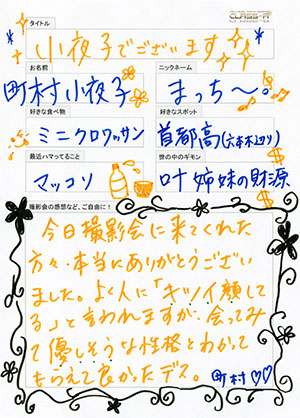 タイトル
小夜子でございます
お名前
ニックネーム
町村小夜子
まっち〜。
好きな食べ物
好きなスポット
ミニクロワッサン
首都高(六本木辺り)
最近ハマってること
世の中のギモン
マッコリ
叶姉妹の財源
撮影会の感想など、ご自由に!
今日撮影会に来てくれた
方々、本当にありがとうござい
ました。よく人に「キツイ顔して
る」と言われますが、会ってみ
て優しそうな性格とわかって
もらえて良かったデス。
町村♡♡